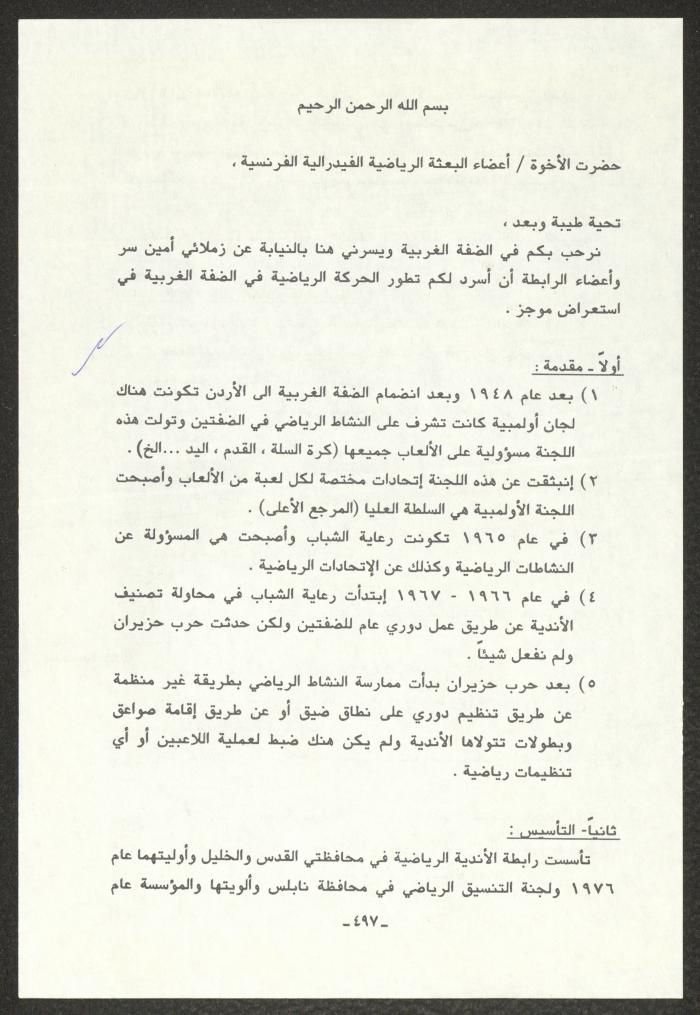 بسم الله الرحمن الرحيم
حضرت الأخوة / أعضاء البعثة الرياضية الفيدرالية الفرنسية ،
تحية طيبة وبعد ،
نرحب بكم في الضفة الغربية ويسرني هنا بالنيابة عن زملائي أمين سر
وأعضاء الرابطة أن أسرد لكم تطور الحركة الرياضية في الضفة الغربية في
استعراض موجز .
أولاً ـ مقدمة :
١) بعد عام ١٩٤٨ وبعد انضمام الضفة الغربية الى الأردن تكونت هناك
لجان أولمبية كانت تشرف على النشاط الرياضي في الضفتين وتولت هذه
اللجنة مسؤولية على الألعاب جميعها (كرة السلة ، القدم ، اليد ...الخ) .
٢) إنبثقت عن هذه اللجنة إتحادات مختصة لكل لعبة من الألعاب وأصبحت
اللجنة الأولمبية هي السلطة العليا (المرجع الأعلى) .
٣) في عام ١٩٦٥ تكونت رعاية الشباب وأصبحت هي المسؤولة عن
النشاطات الرياضية وكذلك عن الإتحادات الرياضية .
٤) في عام ١٩٦٦ - ١٩٦٧ إبتدأت رعاية الشباب في محاولة تصنيف
الأندية عن طريق عمل دوري عام للضفتين ولكن حدثت حرب حزيران
ولم نفعل شيئاً .
٥) بعد حرب حزيران بدأت ممارسة النشاط الرياضي بطريقة غير منظمة
عن طريق تنظيم دوري على نطاق ضيق أو عن طريق إقامة صواعق
وبطولات تتولاها الأندية ولم يكن هنك ضبط لعملية اللاعبين أو أي
تنظيمات رياضية .
ثانياً- التأسيس :
تأسست رابطة الأندية الرياضية في محافظتي القدس والخليل وأوليتهما عام
١٩٧٦ ولجنة التنسيق الرياضي في محافظة نابلس وألويتها والمؤسسة عام
ـ ٤٩٧ ـ